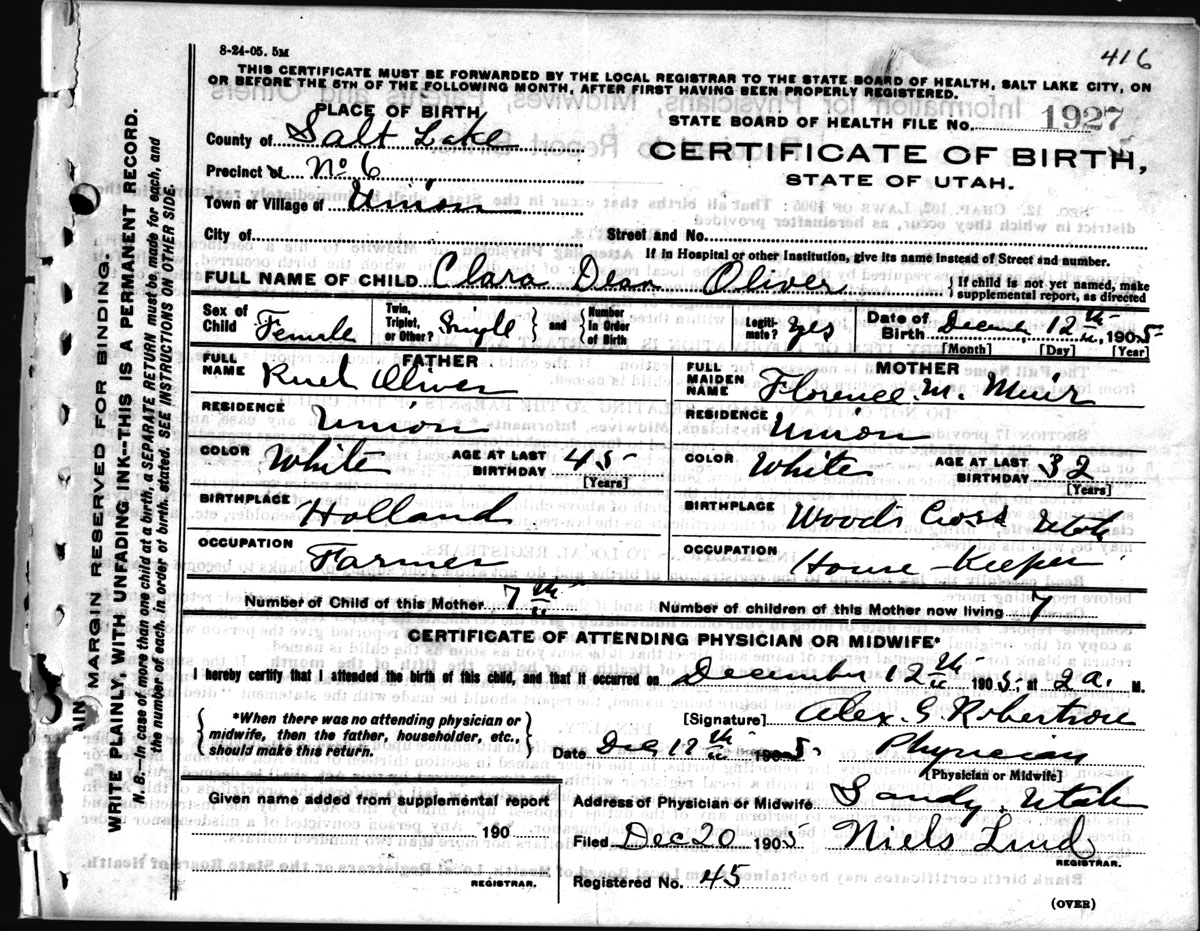 8-24-05. 5M
416
THIS CERTIFICATE MUST BE FORWARDED BY THE LOCAL REGISTRAR TO THE STATE BOARD OF HEALTH, SALT LAKE CITY, ON
OR BEFORE THE 5TH OF THE FOLLOWING MONTH, AFTER FIRST HAVING BEEN PROPERLY REGISTERED.
PLACE OF BIRTH
County of Salt Lake
Precinct of No 6
Town or Village of Union
STATE BOARD OF HEALTH FILE No. 1927
CERTIFICATE OF BIRTH,
STATE OF UTAH.
City of Street and No.
If in Hospital or other Institution, give its name instead of Street and number.
FULL NAME OF CHILD Clara Dean Oliver } If child is not yet named, make
supplemental report, as directed
Sex of Child Female
Twin, Triplet, or Other? Single } and { Number In Order of Birth
Legiti-mate? Yes
Date of Birth December 12th, 1905
[Month] [Day] [Year]
FATHER
FULL NAME Ruel Oliver
RESIDENCE Union
COLOR White AGE AT LAST BIRTHDAY 45
[Years]
BIRTHPLACE Holland
OCCUPATION Farmer
MOTHER
FULL MAIDEN NAME Florence M. Muir
RESIDENCE Union
COLOR White AGE AT LAST BIRTHDAY 32
[Years]
BIRTHPLACE Woods Cross Utah
OCCUPATION House-Keeper
Number of Child of this Mother 7th Number of children of this Mother now living 7
CERTIFICATE OF ATTENDING PHYSICIAN OR MIDWIFE*
I hereby certify that I attended the birth of this child, and that it occurred on December 12th 1905, at 2 a. M.
{ *When there was no attending physician or
midwife, then the father, householder, etc.,
should make this return. }
[Signature] Alex. S. Robertson
Date Dec 12th 1905 Physician
[Physician or Midwife]
Given name added from supplemental report
190
REGISTRAR.
Address of Physician or Midwife Sandy. Utah
Filed Dec 20 1905 Niels Lind
REGISTRAR.
Registered No. 45
(OVER)
MARGIN RESERVED FOR BINDING.
WRITE PLAINLY, WITH UNFADING INK--THIS IS A PERMANENT RECORD.
N. B.--In case of more than one child at a birth, a SEPARATE RETURN must be made for each, and
the number of each, in order of birth, stated. SEE INSTRUCTIONS ON OTHER SIDE.